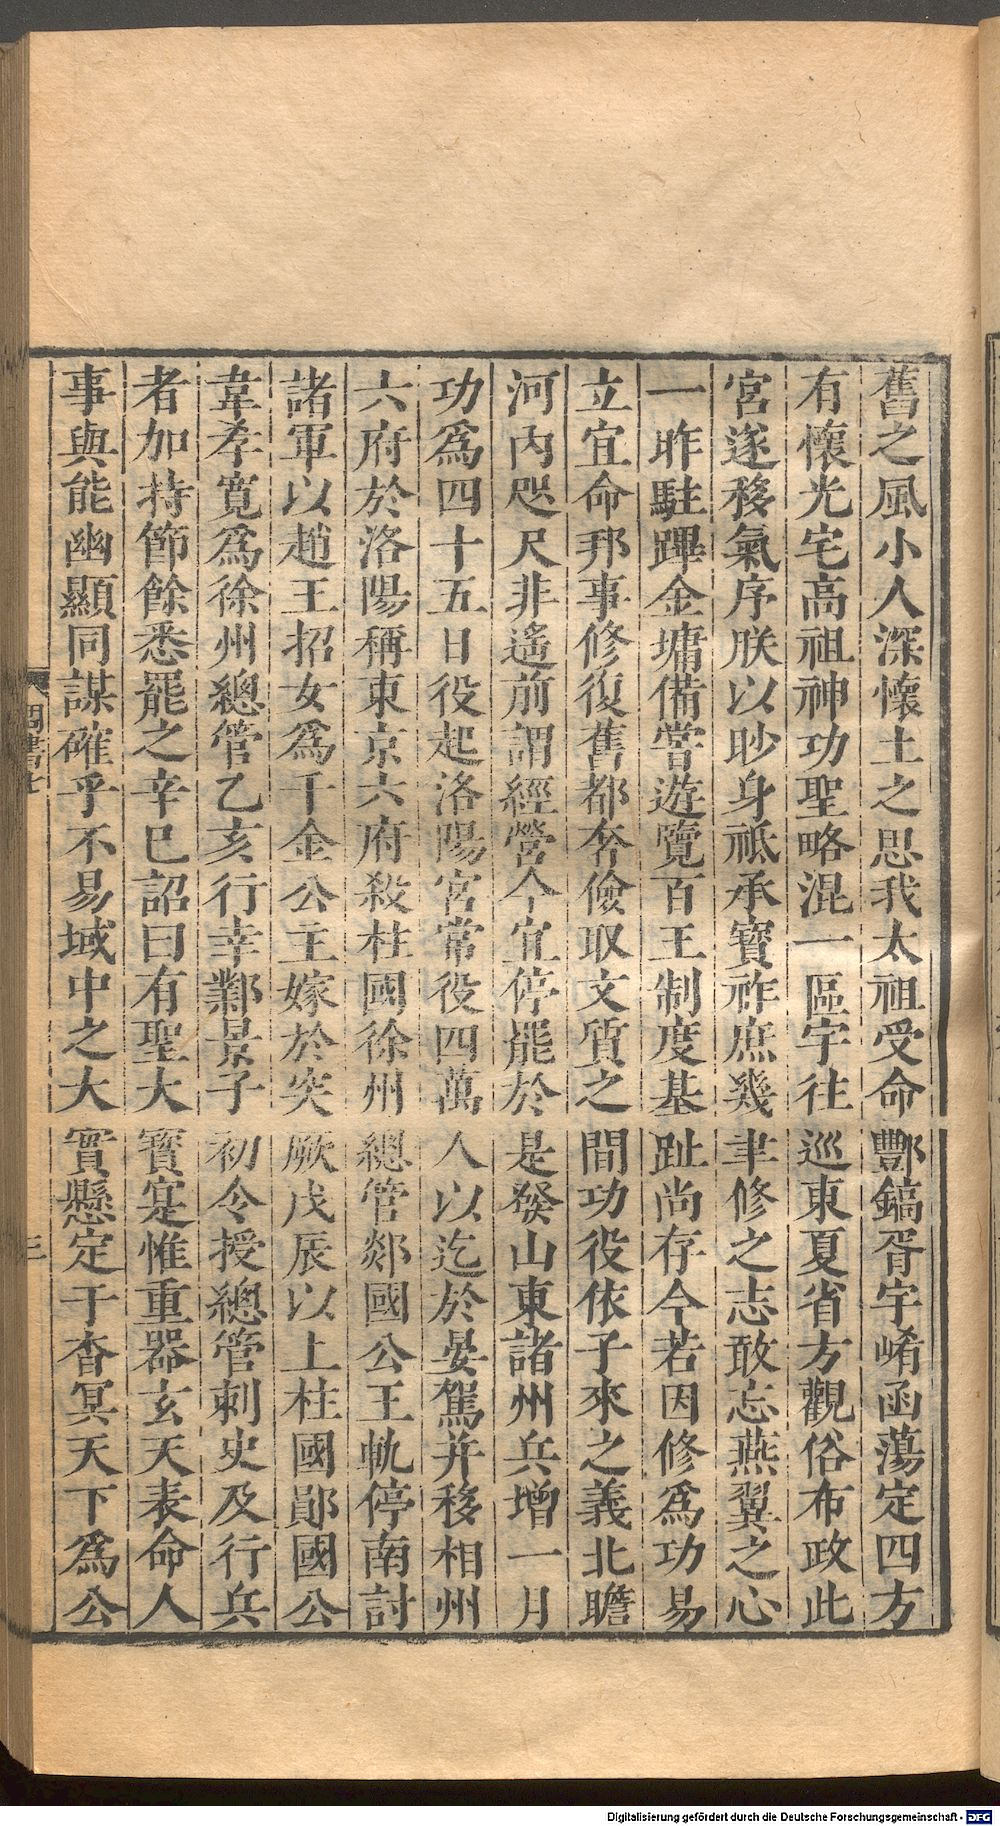 舊之風小人深懷土之思我太祖受命酆鎬胥宇崤函蕩定四方
有懷光宅高祖神功聖略混一區宇往巡東夏省方觀俗布政此
宮遂移氣序朕以眇身祗承寶祚庶幾聿修之志敢忘燕翼之心
一昨駐蹕金墉備嘗遊覽百王制度基趾尚存今若因修爲功易
立宜命邦事修復舊都奢儉取文質之間功役依子來之義北瞻
河內咫尺非遙前謂經營今宜停罷於是發山東諸州兵增一月
功爲四十五日役起洛陽宮常役四萬人以迄於晏駕并移相州
六府於洛陽稱東京六府殺柱國徐州總管郯國公王軌停南討
諸軍以趙王招女爲千金公主嫁於突厥戊辰以上柱國鄖國公
韋孝寬爲徐州總管乙亥行幸鄴景子初令授總管刺史及行兵
者加持節餘悉罷之辛巳詔曰有聖大寶寔惟重器玄天表命人
事與能幽顯同謀確乎不易域中之大實懸定于杳冥天下爲公
周書七
三
Digitalisierung gefördert durch die Deutsche Forschungsgemeinschaft - DFG